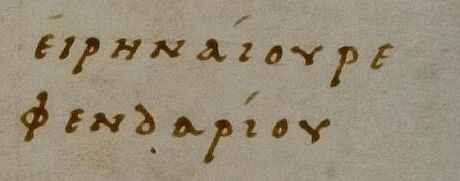 εἰρηναίου ρε
φενδαρίου